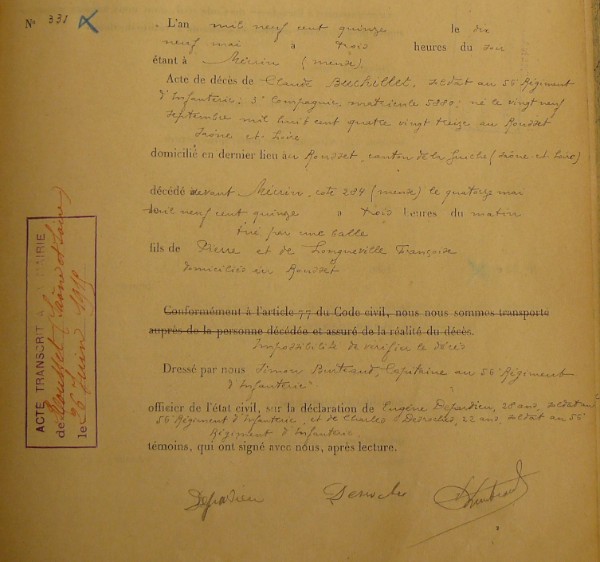 N° 331
L'an mil neuf cent quinze le dix
neuf mai à trois heures du soir
étant à Mécrin (meuse)
Acte de décès de Claude Buchillet, soldat au 56 Régiment
d'Infanterie; 3e Compagnie, matricule 5880; né le vingt neuf
septembre mil huit cent quatre vingt treize au Rousset
Saône et Loire
domicilié en dernier lieu au Rousset, canton de la Guiche (Saône et Loire)
décédé devant Mécrin, cote 289 (meuse) le quatorze mai
mil neuf cent quinze à trois heures du matin
tué par une balle
fils de Pierre et de Longueville Françoise
domiciliés au Rousset
Conformément à l'article 77 du Code civil, nous nous sommes transporté
auprès de la personne décédée et assuré de la réalité du décès.
Impossibilité de vérifier le décès
Dressé par nous Simon Capitaine au 56e Régiment
d'Infanterie
officier de l'état civil, sur la déclaration de Eugène Dejardieu, 28 ans, soldat au
56 Régiment d'Infanterie, et de Charles Desroches, 22 ans, soldat au 56
Régiment d'Infanterie
témoins, qui ont signé avec nous, après lecture.
ACTE TRANSCRIT A MAIRIE
de Rousset (Saône et Loire)
le 26 Juin 1915